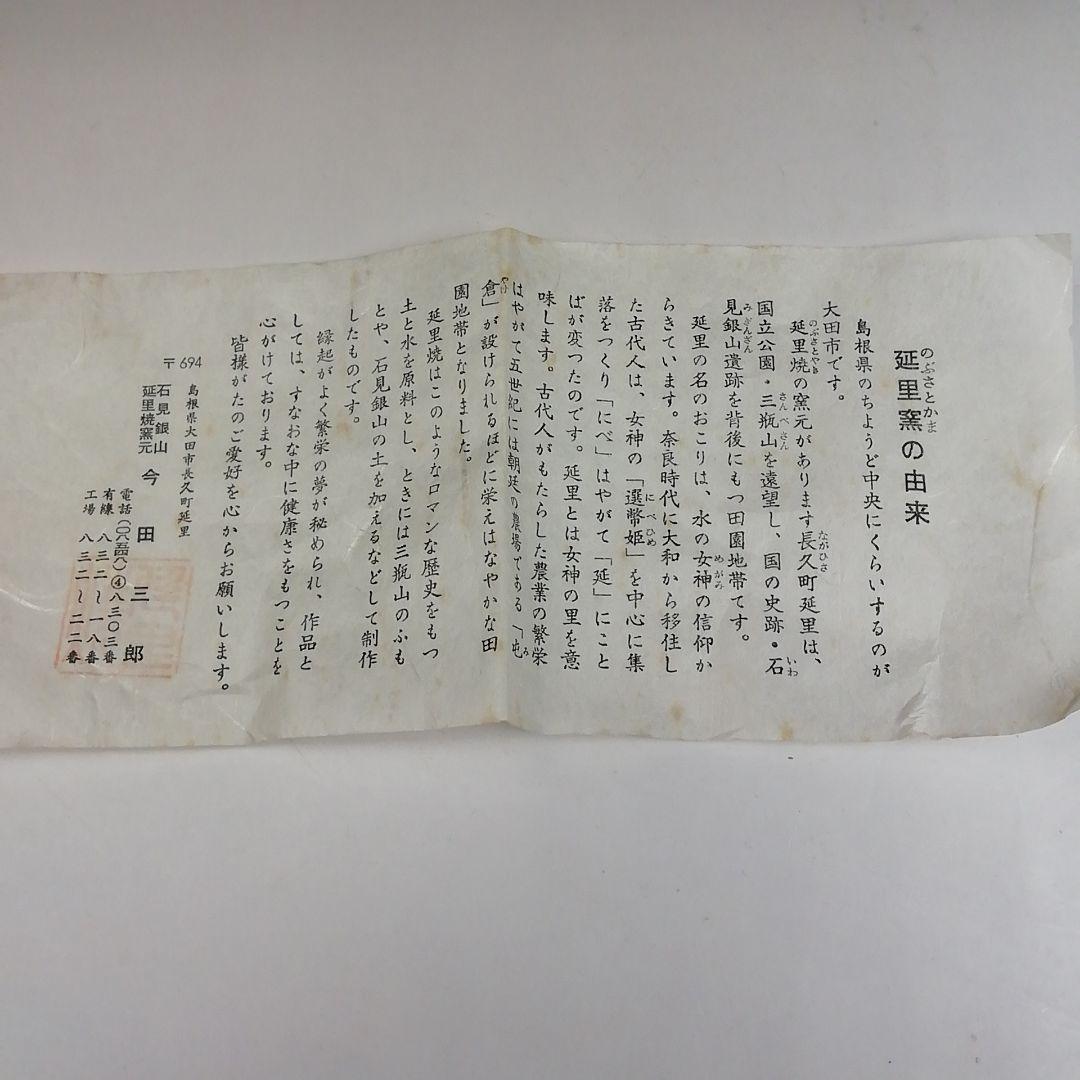 延里窯の由来
のぶさとかま
島根県のちようど中央にくらいするのが
大田市です。
延里焼の窯元があります長久町延里は、
のぶさとやき ながひさ
国立公園・三瓶山を遠望し、国の史跡・石
さんべさん いわ
見銀山遺跡を背後にもつ田園地帯てす。
みぎんざん
延里の名のおこりは、水の女神の信仰か
めがみ
らきています。奈良時代に大和から移住し
た古代人は、女神の「選幣姫」を中心に集
にべひめ
落をつくり「にべ」はやがて「延」にこと
ばが変つたのです。延里とは女神の里を意
味します。古代人がもたらした農業の繁栄
はやがて五世紀には朝廷の農場である「屯
み
倉」が設けられるほどに栄えはなやかな田
やけ
園地帯となりました。
延里焼はこのようなロマンな歴史をもつ
土と水を原料とし、ときには三瓶山のふも
とや、石見銀山の土を加えるなどして制作
したものです。
縁起がよく繁栄の夢が秘められ、作品と
しては、すなおな中に健康さをもつことを
心がけております。
皆様がたのご愛好を心からお願いします。
〒694 島根県大田市長久町延里
石見銀山
延里焼窯元 今田三郎
電話(〇八五四八)④八三〇三番
有線 八三二〜一八番
工場 八三二〜二二番